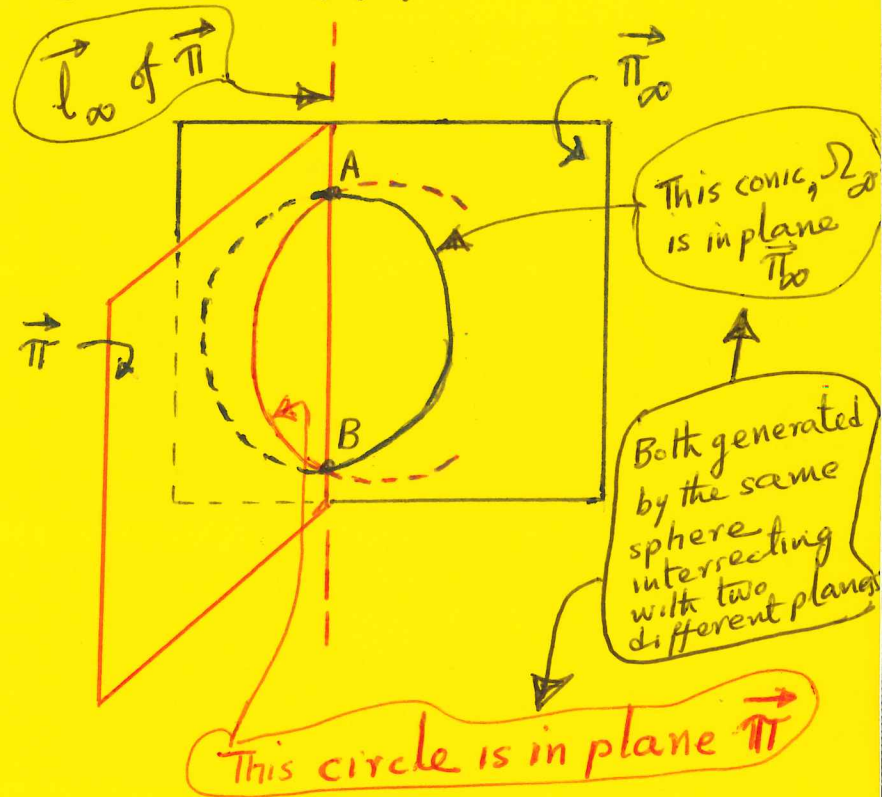 l⃗∞ of π⃗
π⃗∞
A
This conic, Ω∞
is in plane
π⃗∞
π⃗
B
Both generated
by the same
sphere
intersecting
with two
different planes
This circle is in plane π⃗